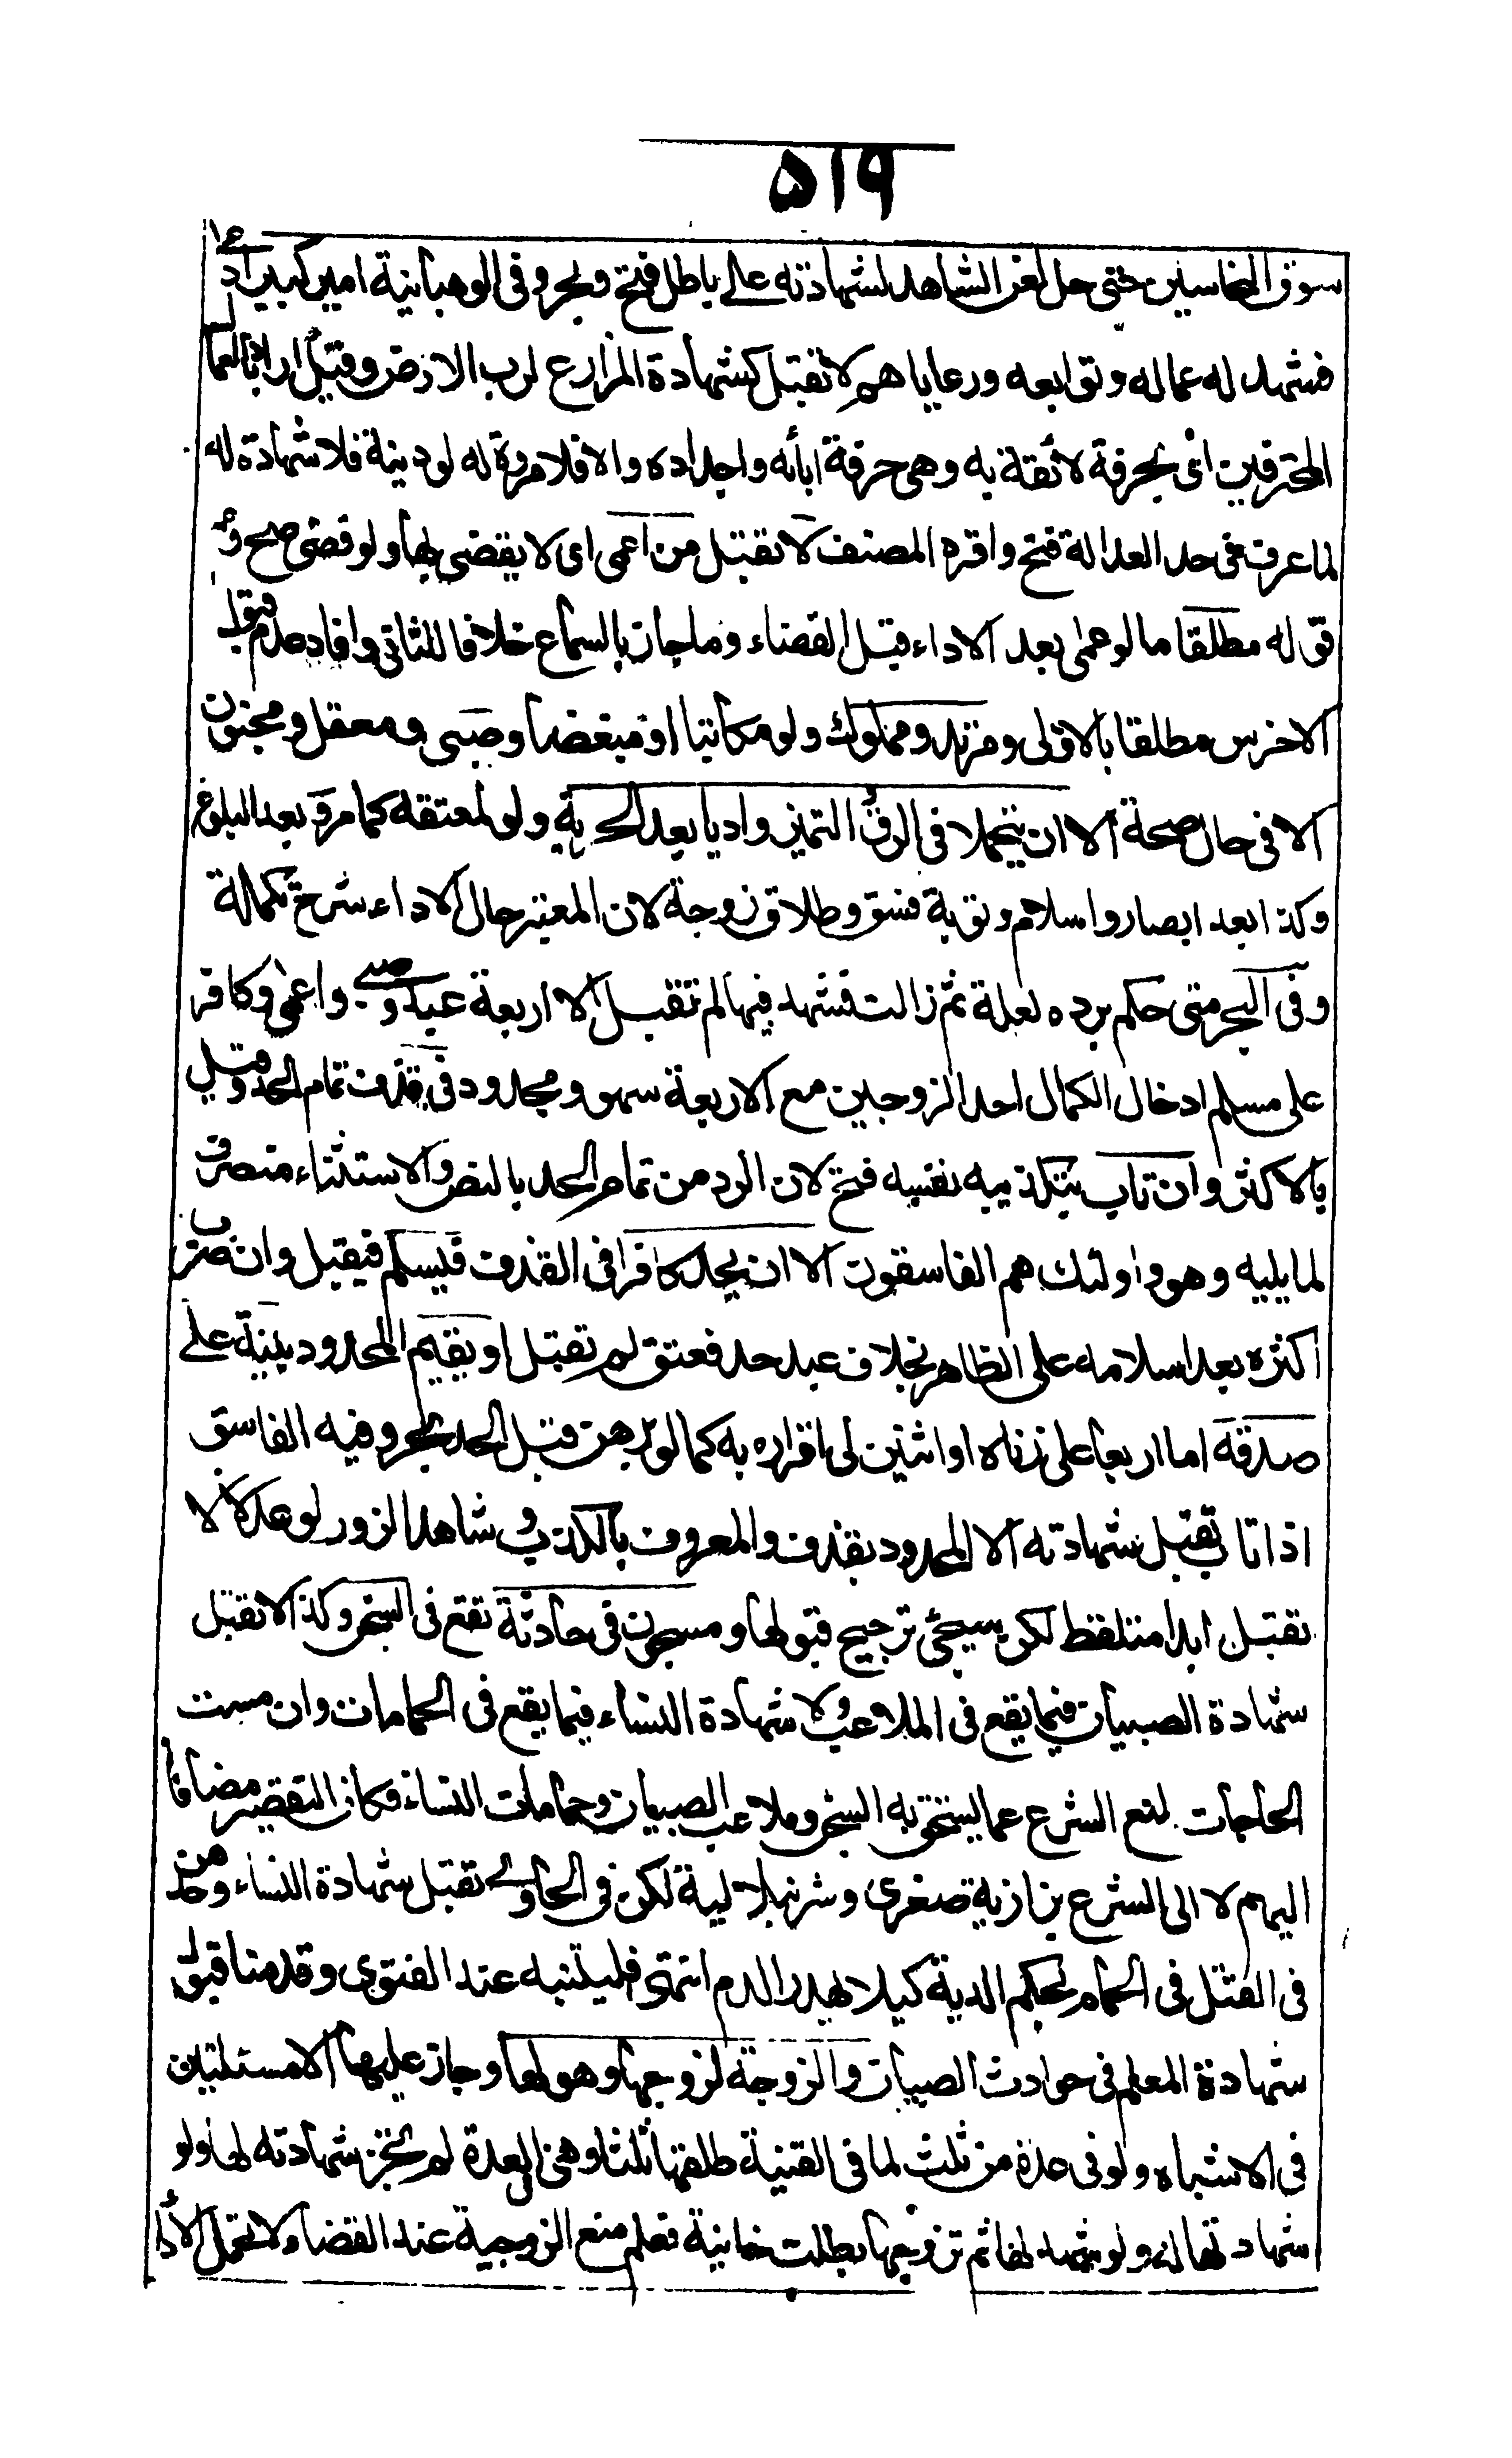 ٥١٩
سوق النخاسين حتى حل لعن الشاهد لشهادته على باطل فتح وبحر وفي الوهبانية امير كبير ادعى
فشهد له عماله وتوابعه ورعاياهم لا تقبل كشهادة المزارع لرب الارض وقيل اراد بالعمال
المحترفين اى بحرفة لائقة به وهى حرفة ابائه واجداده والا فلا مروة له لو دنية فلا شهادة له
لما عرف فى حد العدالة فتح واقره المصنف لا تقبل من اعمى اى لا يقضى بها ولو قضى صح وعم
قوله مطلقا ما لو عمى بعد الاداء قبل القضاء وما جاز بالسماع خلافا للثانى وافاد عدم قبول
الاخرس مطلقا بالاولى ومرتد ومملوك ولو مكاتبا او مبعضا وصبى ومغفل ومجنون
الا فى حال صحة الا ان يتحملا فى الرق التميز واديا بعد الحرية ولو لمعتقه كما مر وبعد البلوغ
وكذا بعد ابصار واسلام وتوبة فسق وطلاق زوجة لان المعتبر حال الاداء شرح تكملة
وفى البحر متى حكم برده لعلة ثم زالت فشهد فيها لم تقبل الا اربعة عبد وصبى واعمى وكافر
على مسلم ادخال الكمال احد الزوجين مع الاربعة سهو ومحدود فى قذف تمام الحد وقيل
بالاكثر وان تاب بتكذيبه نفسه فتح لان الرد من تمام الحد بالنص والاستثناء منصرف
لما يليه وهو واولئك هم الفاسقون الا ان يحد كافرا فى القذف فيسلم فيقبل وان ضرب
اكثره بعد اسلامه على الظاهر بخلاف عبد حد فعتق لم تقبل او يقيم المحدود بينة على
صدقه اما اربعا على زناه او اثنين لى اقراره به كما لو برهن قبل الحد بحر وفيه الفاسق
اذا تاب تقبل شهادته الا المحدود بقذف والمعروف بالكذب وشاهد الزور لو عدلا لا
تقبل ابدا ملتقط لكن سيجئ ترجيح قبولها ومسجون فى حادثة تقع فى السجن وكذا لا تقبل
شهادة الصبيان فيما يقع فى الملاعب ولا شهادة النساء فيما يقع فى الحمامات وان مست
الحاجات لمنع الشرع عما يستحق به السجن وملاعب الصبيان وحمامات النساء فكان التقصير مضافا
اليهم لا الى الشرع بزازية صغرى وشرنبلالية لكن فى الحاوى تقبل شهادة النساء وحدهن
فى القتل فى الحمام لحكم الدية كيلا يهدر الدم انتهى فليتنبه عند الفتوى وقدمنا قبول
شهادة المعلم فى حوادث الصبيان والزوجة لزوجها وهو لها وجاز عليها الا مسئلتين
فى الاشباه ولو فى عدة من ثلث لما فى القنية طلقها ثلثا وهى فى العدة لم تجز شهادته لها ولو
شهادتها له ولو شهد لها ثم تزوجها بطلت خانية فعلم منع الزوجية عند القضاء لا تحمل الادا